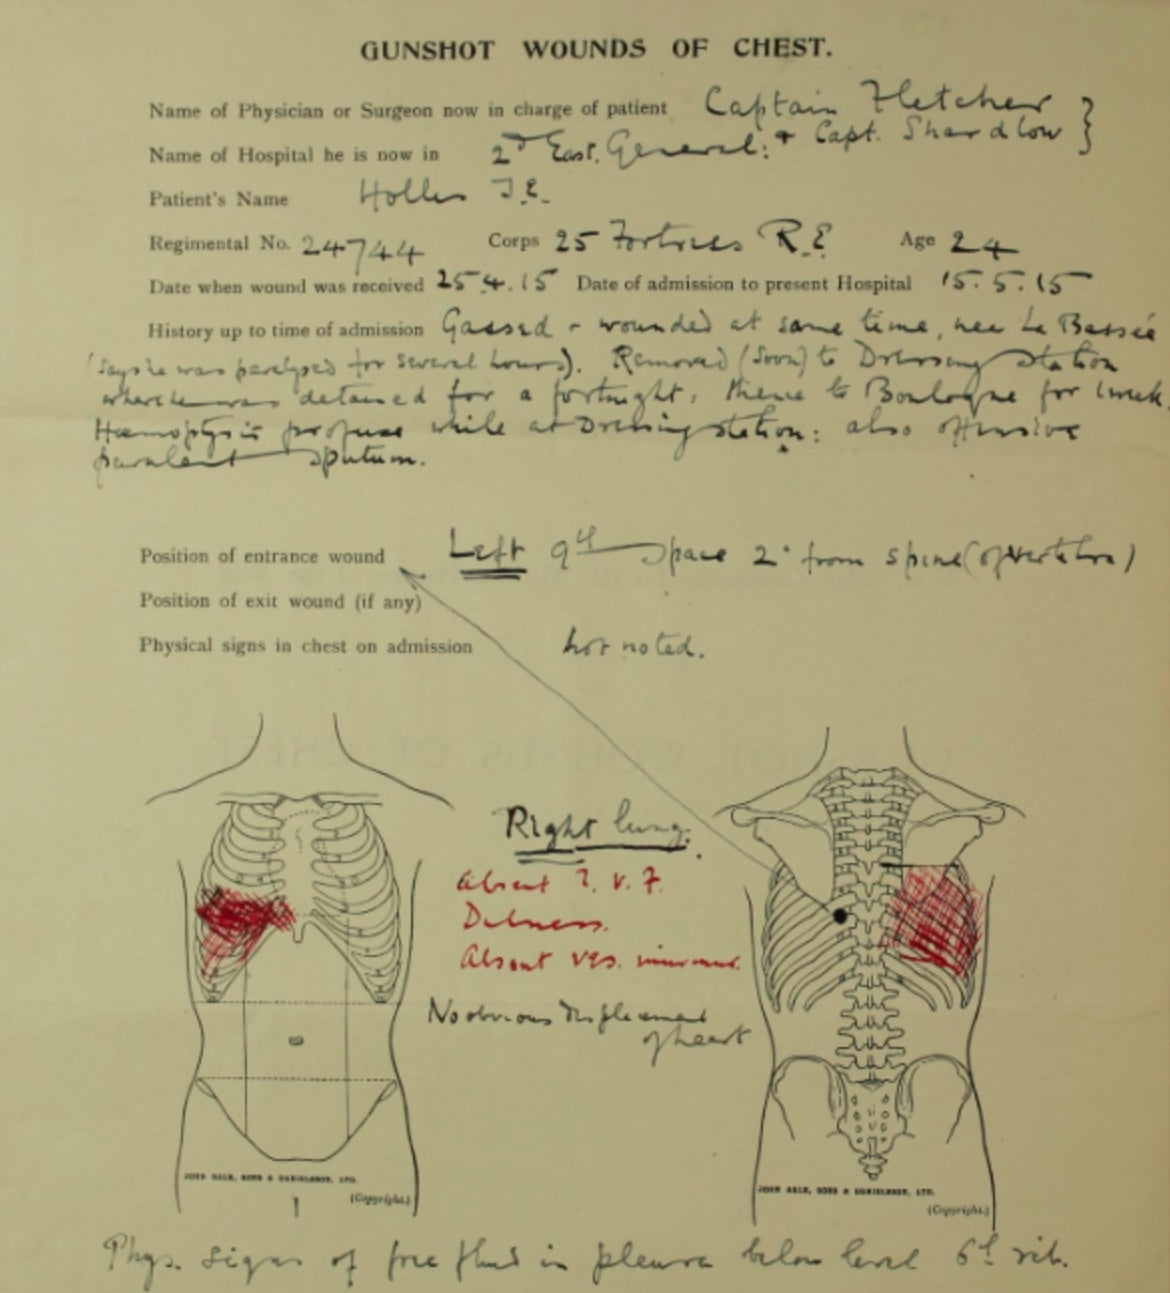 GUNSHOT WOUNDS OF CHEST.
Name of Physician or Surgeon now in charge of patient Captain Fletcher
Name of Hospital he is now in 2d East. General: + Capt. Shardlow }
Patient's Name Holles J.E.
Regimental No. 24744 Corps 25 Fortress R.E. Age 24
Date when wound was received 25.4.15 Date of admission to present Hospital 15.5.15
History up to time of admission Gassed + wounded at same time, near La Bassée
(says he was paralysed for several hours). Removed (soon) to Dressing Station
where he was detained for a fortnight: thence to Boulogne for 1 week.
Haemoptysis profuse while at Dressing Station: also offensive
purulent sputum.
Position of entrance wound Left 9th space 2" from spine (of vertebra)
Position of exit wound (if any)
Physical signs in chest on admission not noted.
Right lung.
Absent T.V.F.
Dulness.
Absent ves. murmur.
No obvious displacement
of heart
JOHN BALE, SONS & DANIELSSON, LTD.
(Copyright.)
JOHN BALE, SONS & DANIELSSON, LTD.
(Copyright.)
Phys. signs of free fluid in pleura below level 6th rib.